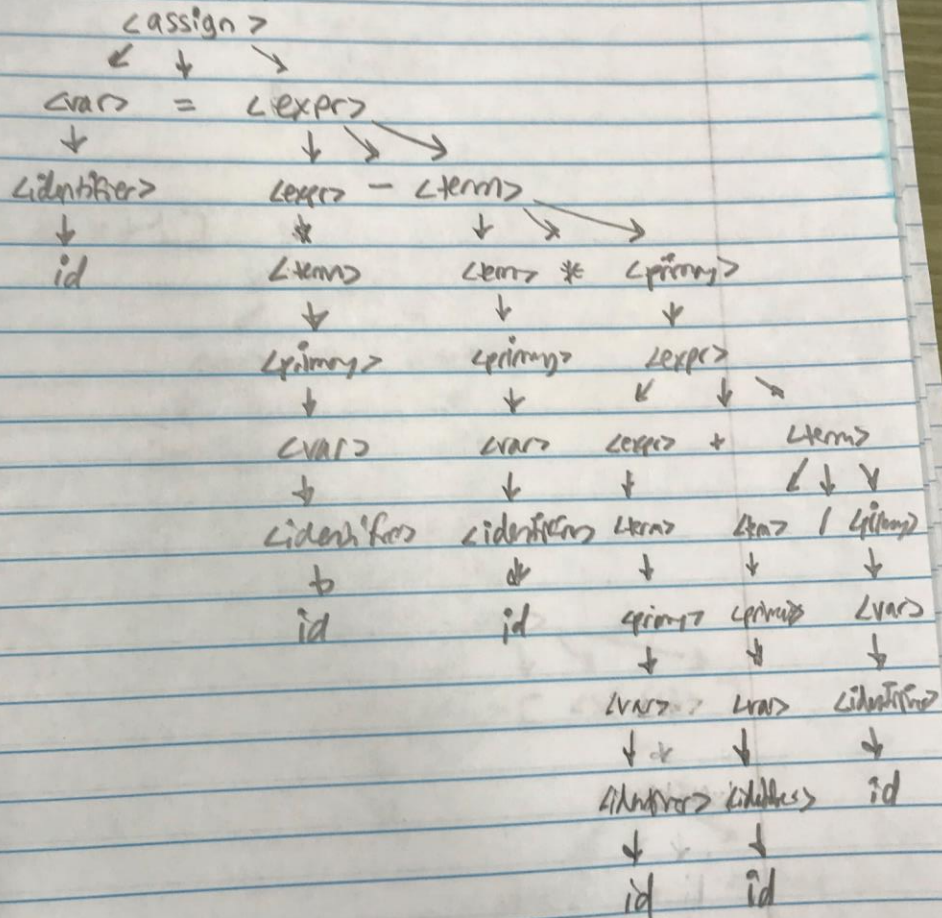 <assign>
<var> = <expr>
<identifier> <expr> - <term>
id <term> <term> * <primary>
<primary> <primary> <expr>
<var> <var> <expr> + <term>
<identifier> <identifier> <term> <term> / <primary>
id id <primary> <primary> <var>
<var> <var> <identifier>
<identifier> <identifier> id
id id